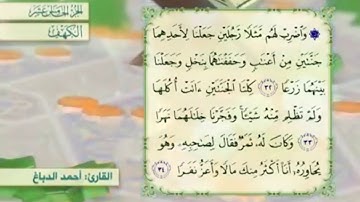 الجزء الخامس عشر
الكهف
وَاضْرِبْ لَهُم مَّثَلًا رَّجُلَيْنِ جَعَلْنَا لِأَحَدِهِمَا
جَنَّتَيْنِ مِنْ أَعْنَابٍ وَحَفَفْنَاهُمَا بِنَخْلٍ وَجَعَلْنَا
بَيْنَهُمَا زَرْعًا ٣٢ كِلْتَا الْجَنَّتَيْنِ آتَتْ أُكُلَهَا
وَلَمْ تَظْلِم مِّنْهُ شَيْئًا وَفَجَّرْنَا خِلَالَهُمَا نَهَرًا
٣٣ وَكَانَ لَهُ ثَمَرٌ فَقَالَ لِصَاحِبِهِ وَهُوَ
يُحَاوِرُهُ أَنَا أَكْثَرُ مِنكَ مَالًا وَأَعَزُّ نَفَرًا ٣٤
القارئ: أحمد الدباغ